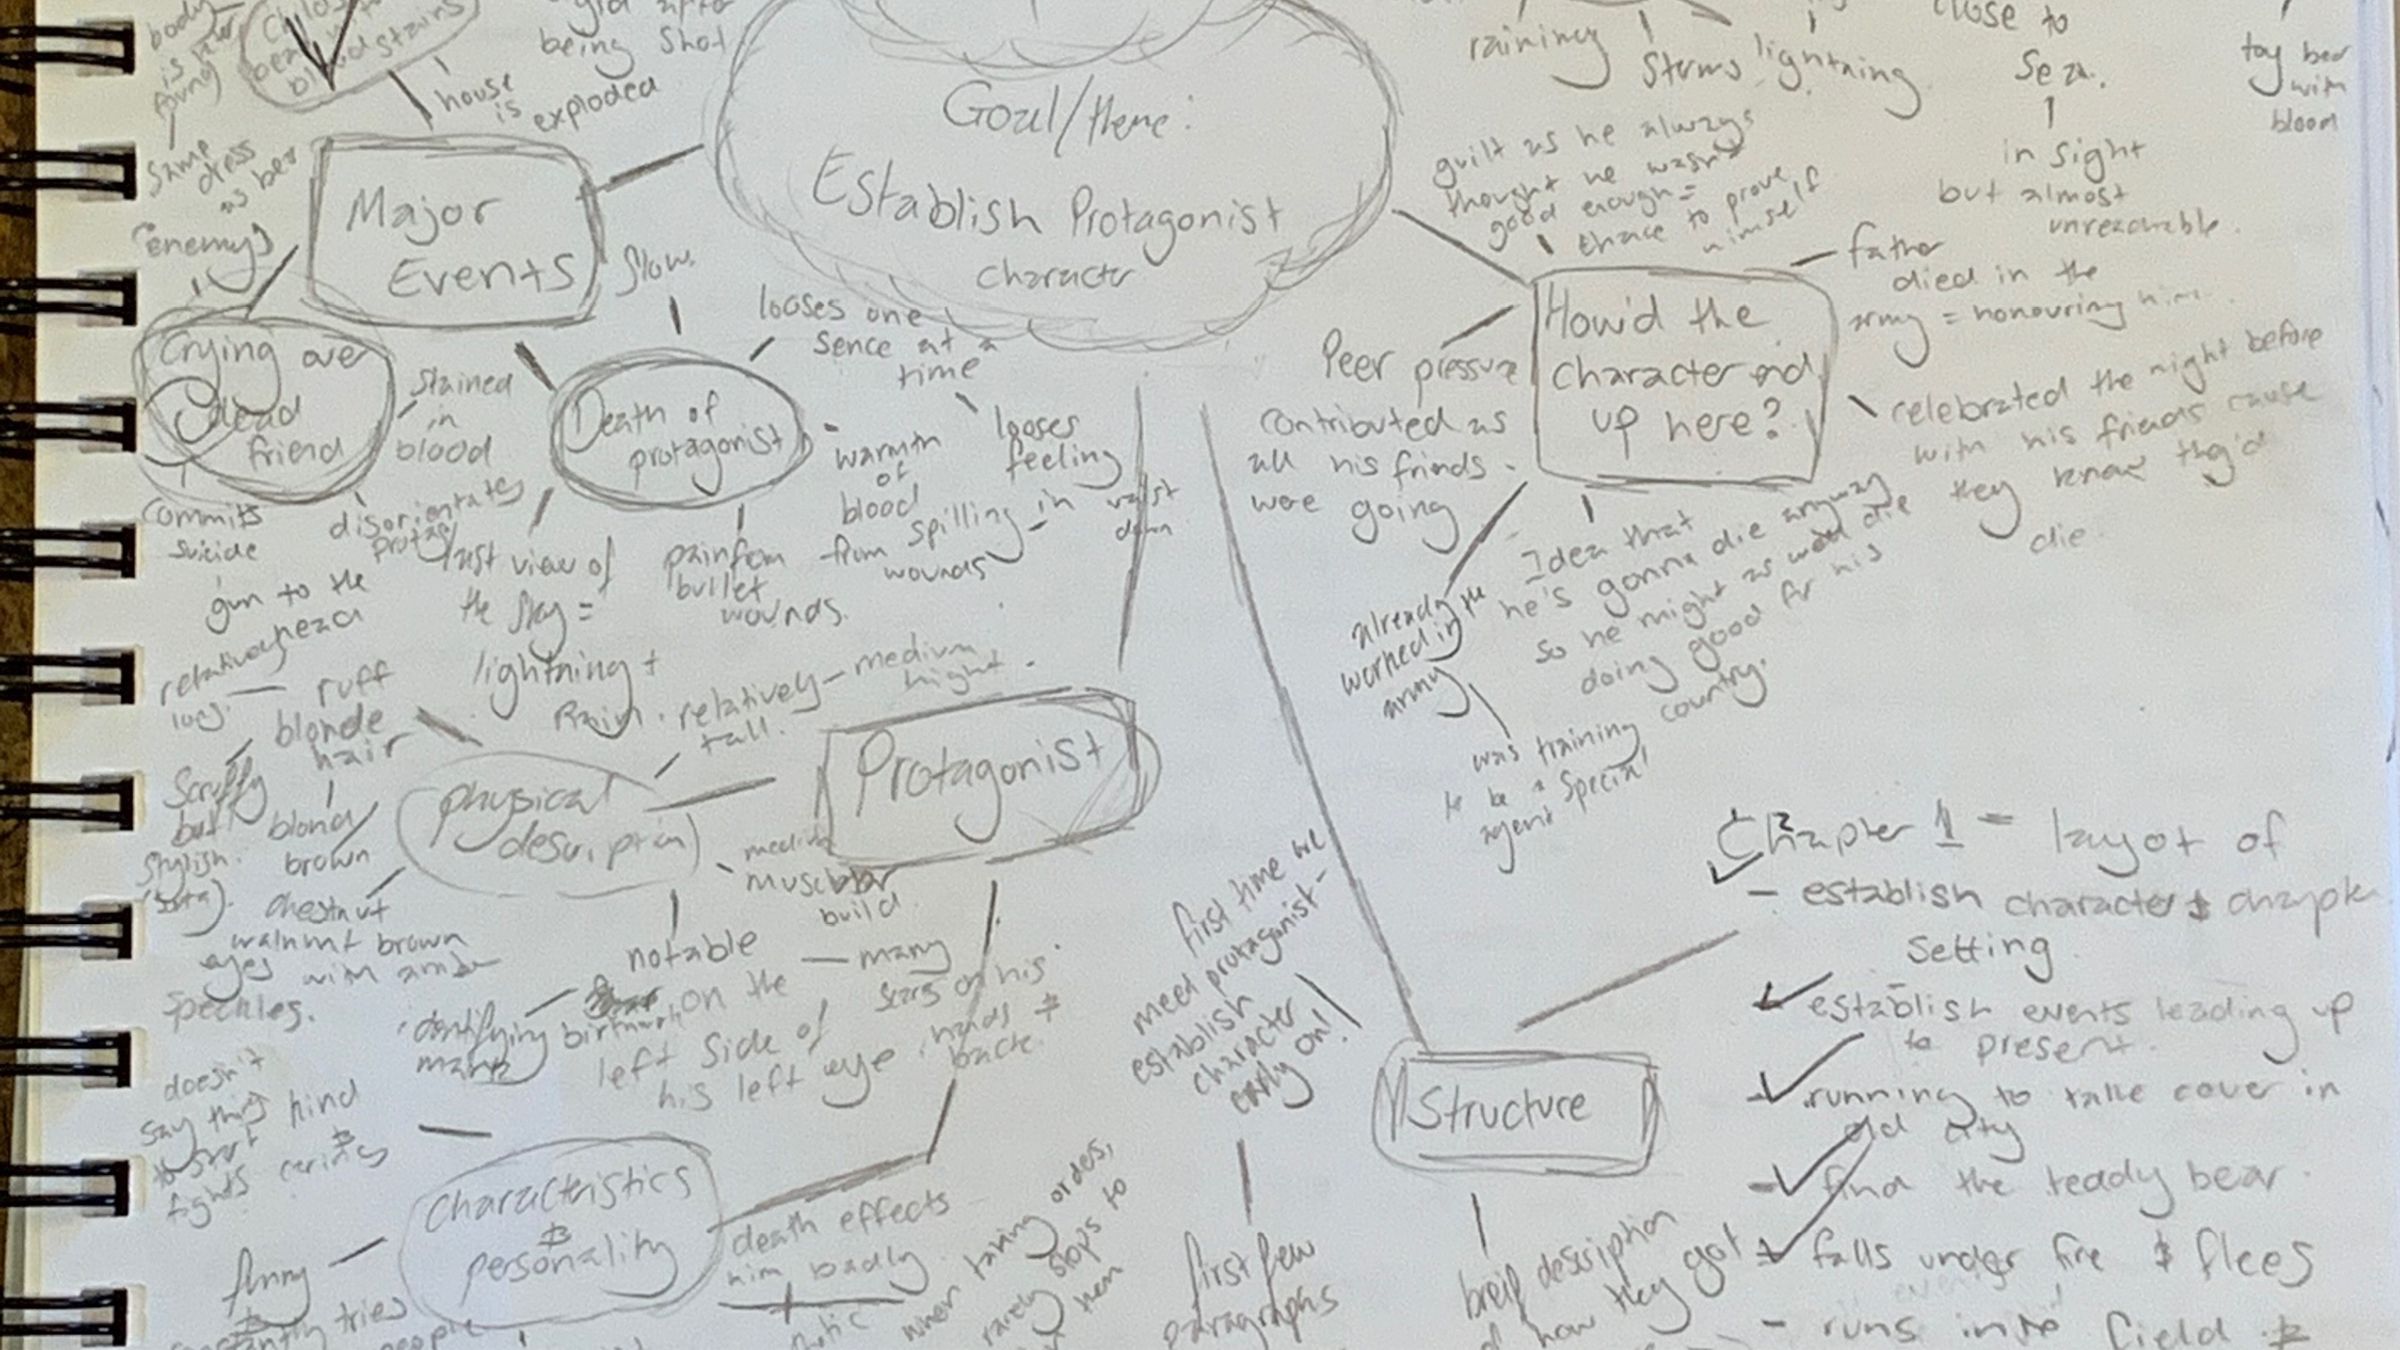 body
is
found
Childs
bear
blood stains
house
is exploded
being shot
Same
dress
as bear
(enemy)
Major
Events
Goal/theme:
Establish Protagonist
character
raining
storms
lightning
close to
sea.
in sight
but almost
unreachable.
toy bear
with
blood
guilt as he always
thought he wasn't
good enough =
chance to prove
himself
Crying over
dead
friend
stained
in
blood
commits
suicide
gun to the
head
disorientates
protag
slow.
Death of
protagonist
looses one
sence at a
time
looses
feeling
in waist
down
warmth
of
blood
spilling
from wounds
pain from
bullet
wounds.
last view of
the sky =
lightning +
Rain.
How'd the
character end
up here?
Peer pressure
contributed as
all his friends
were going
father
died in the
army = honouring him.
celebrated the night before
with his friends cause
they know they'd
die.
Idea that
he's gonna die anyway
so he might as well die
doing good for his
country.
already
worked in the
army
was training
to be a special
agent
Protagonist
physical
description
relatively
tall.
medium
hight.
relatively
long.
ruff
blonde
hair
Scruffy
but
stylish.
blond
brown
chestnut
walnut brown
eyes with amber
speckles.
medium
muscular
build.
notable
identifying
marks
birthmark on the
left side of
his left eye.
many
scars on his
hands &
back.
Characteristics
&
personality
doesn't
say things
to start
fights
kind
&
caring
funny
&
constantly tries
people
death effects
him badly.
when taking orders,
rarely stops to
Structure
first time we
meet protagonist -
establish
character
early on!
first few
paragraphs
breif description
of how they got
Chapter 1 = layot of
chapter
- establish character &
setting.
- establish events leading up
to present.
- running to take cover in
old city
- find the teady bear.
- falls under fire & flees
- runs into field &